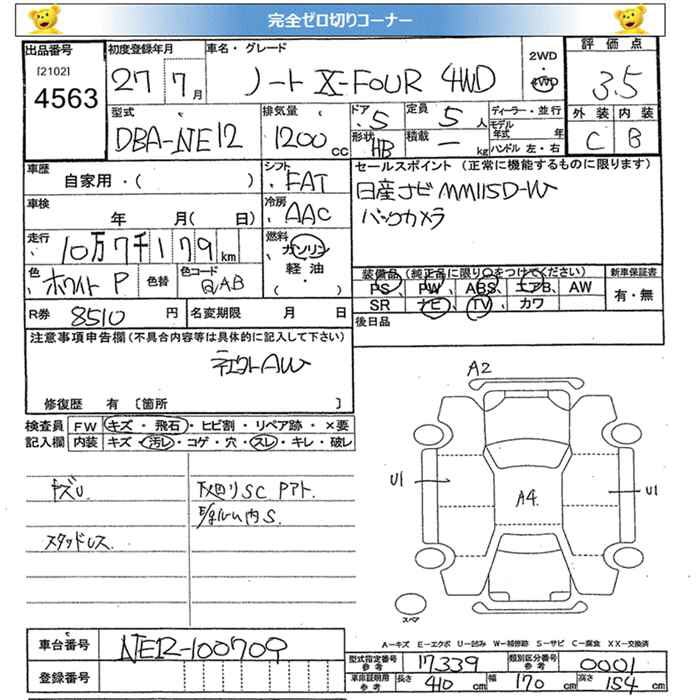 完全ゼロ切りコーナー
出品番号 初度登録年月 車名・グレード 2WD 評価点
[2102] 27年 7月 ノート X-FOUR 4WD ・ 4WD 3.5
4563
型式 排気量 ドア 定員 ディーラー・並行 外装 内装
DBA-NE12 1200cc ・5 5人 モデル年式 年 C B
形状 HB 積載 ー kg ハンドル 左・右
車歴 シフト セールスポイント (正常に機能するものに限ります)
自家用・( ) FAT 日産ナビ MM115D-W
車検 冷房 バックカメラ
年 月( 日) AAC
走行 燃料
10万7千179km ガソリン 軽油 ・( )
装備品 (純正品に限り○をつけてください) 新車保証書
色 ホワイトP 色替 色コード QAB
PS PW ABS エアB AW 有・無
SR ナビ TV カワ
R券 8510円 名変期限 月 日 後日品
注意事項申告欄(不具合内容等は具体的に記入して下さい)
社外AW
修復歴 有 [箇所 ]
検査員 FW キズ・飛石・ヒビ割・リペア跡・×要
記入欄 内装 キズ・汚レ・コゲ・穴・スレ・キレ・破レ
キズU 下廻りSC Pアト.
内S.
スタッドレス.
A2
U1 A4 U1
スペア
A-キズ E-エクボ U-凹み W-補修跡 S-サビ C-腐食 XX-交換済
車台番号 NE12-100709
型式指定番号 参考 17339 類別区分番号 参考 0001
登録番号
車庫証明用 参考 長さ 410 cm 幅 170 cm 高さ 154 cm